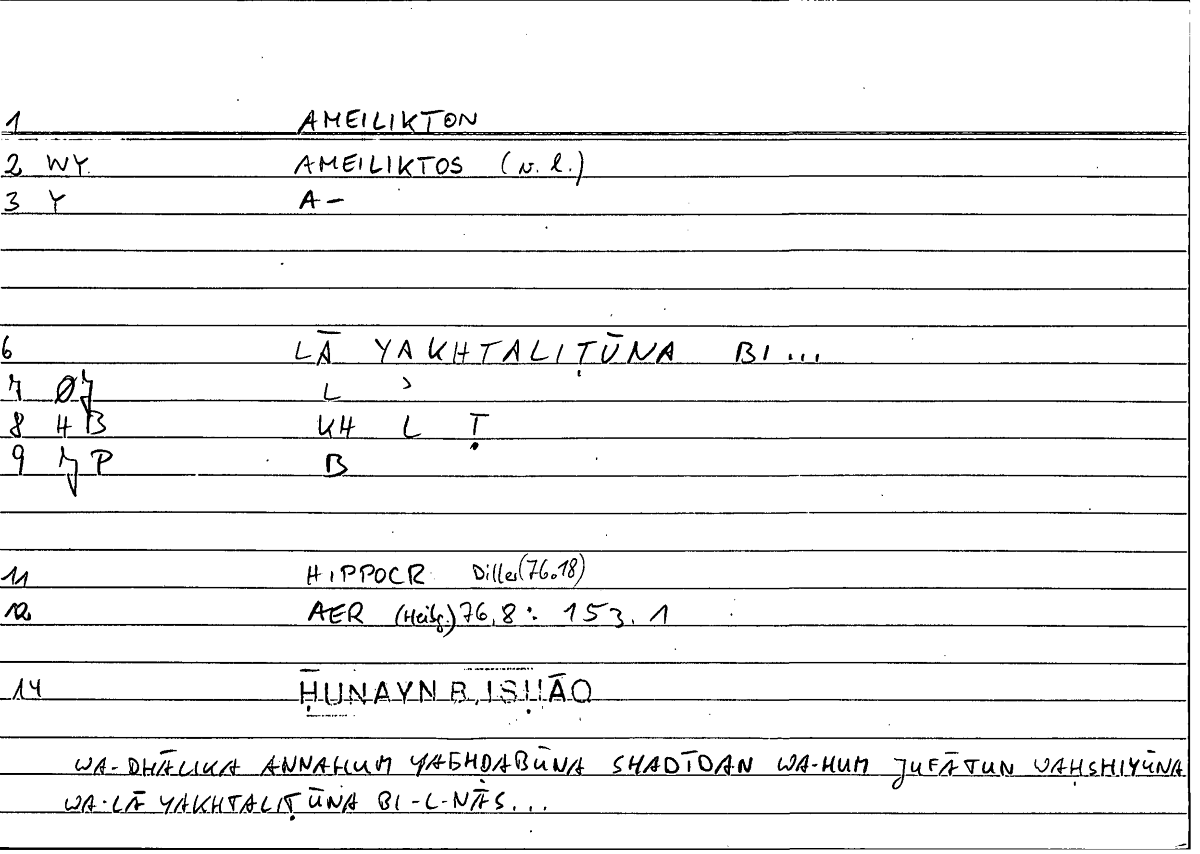 1 AMEILIKTON
2 WY. AMEILIKTOS (v.l.)
3 Y A-
6 LĀ YAKHTALIṬŪNA BI...
7 ØJ L ʾ
8 HB KH L Ṭ
9 JP B
11 HIPPOCR Diller(76.18)
12 AER (Heibg.)76,8: 153.1
14 ḤUNAYN B. ISḤĀQ
WA-DHĀLIKA ANNAHUM YAGHDABŪNA SHADĪDAN WA-HUM JUFĀTUN WAḤSHIYŪNA
WA-LĀ YAKHTALIṬŪNA BI-L-NĀS...